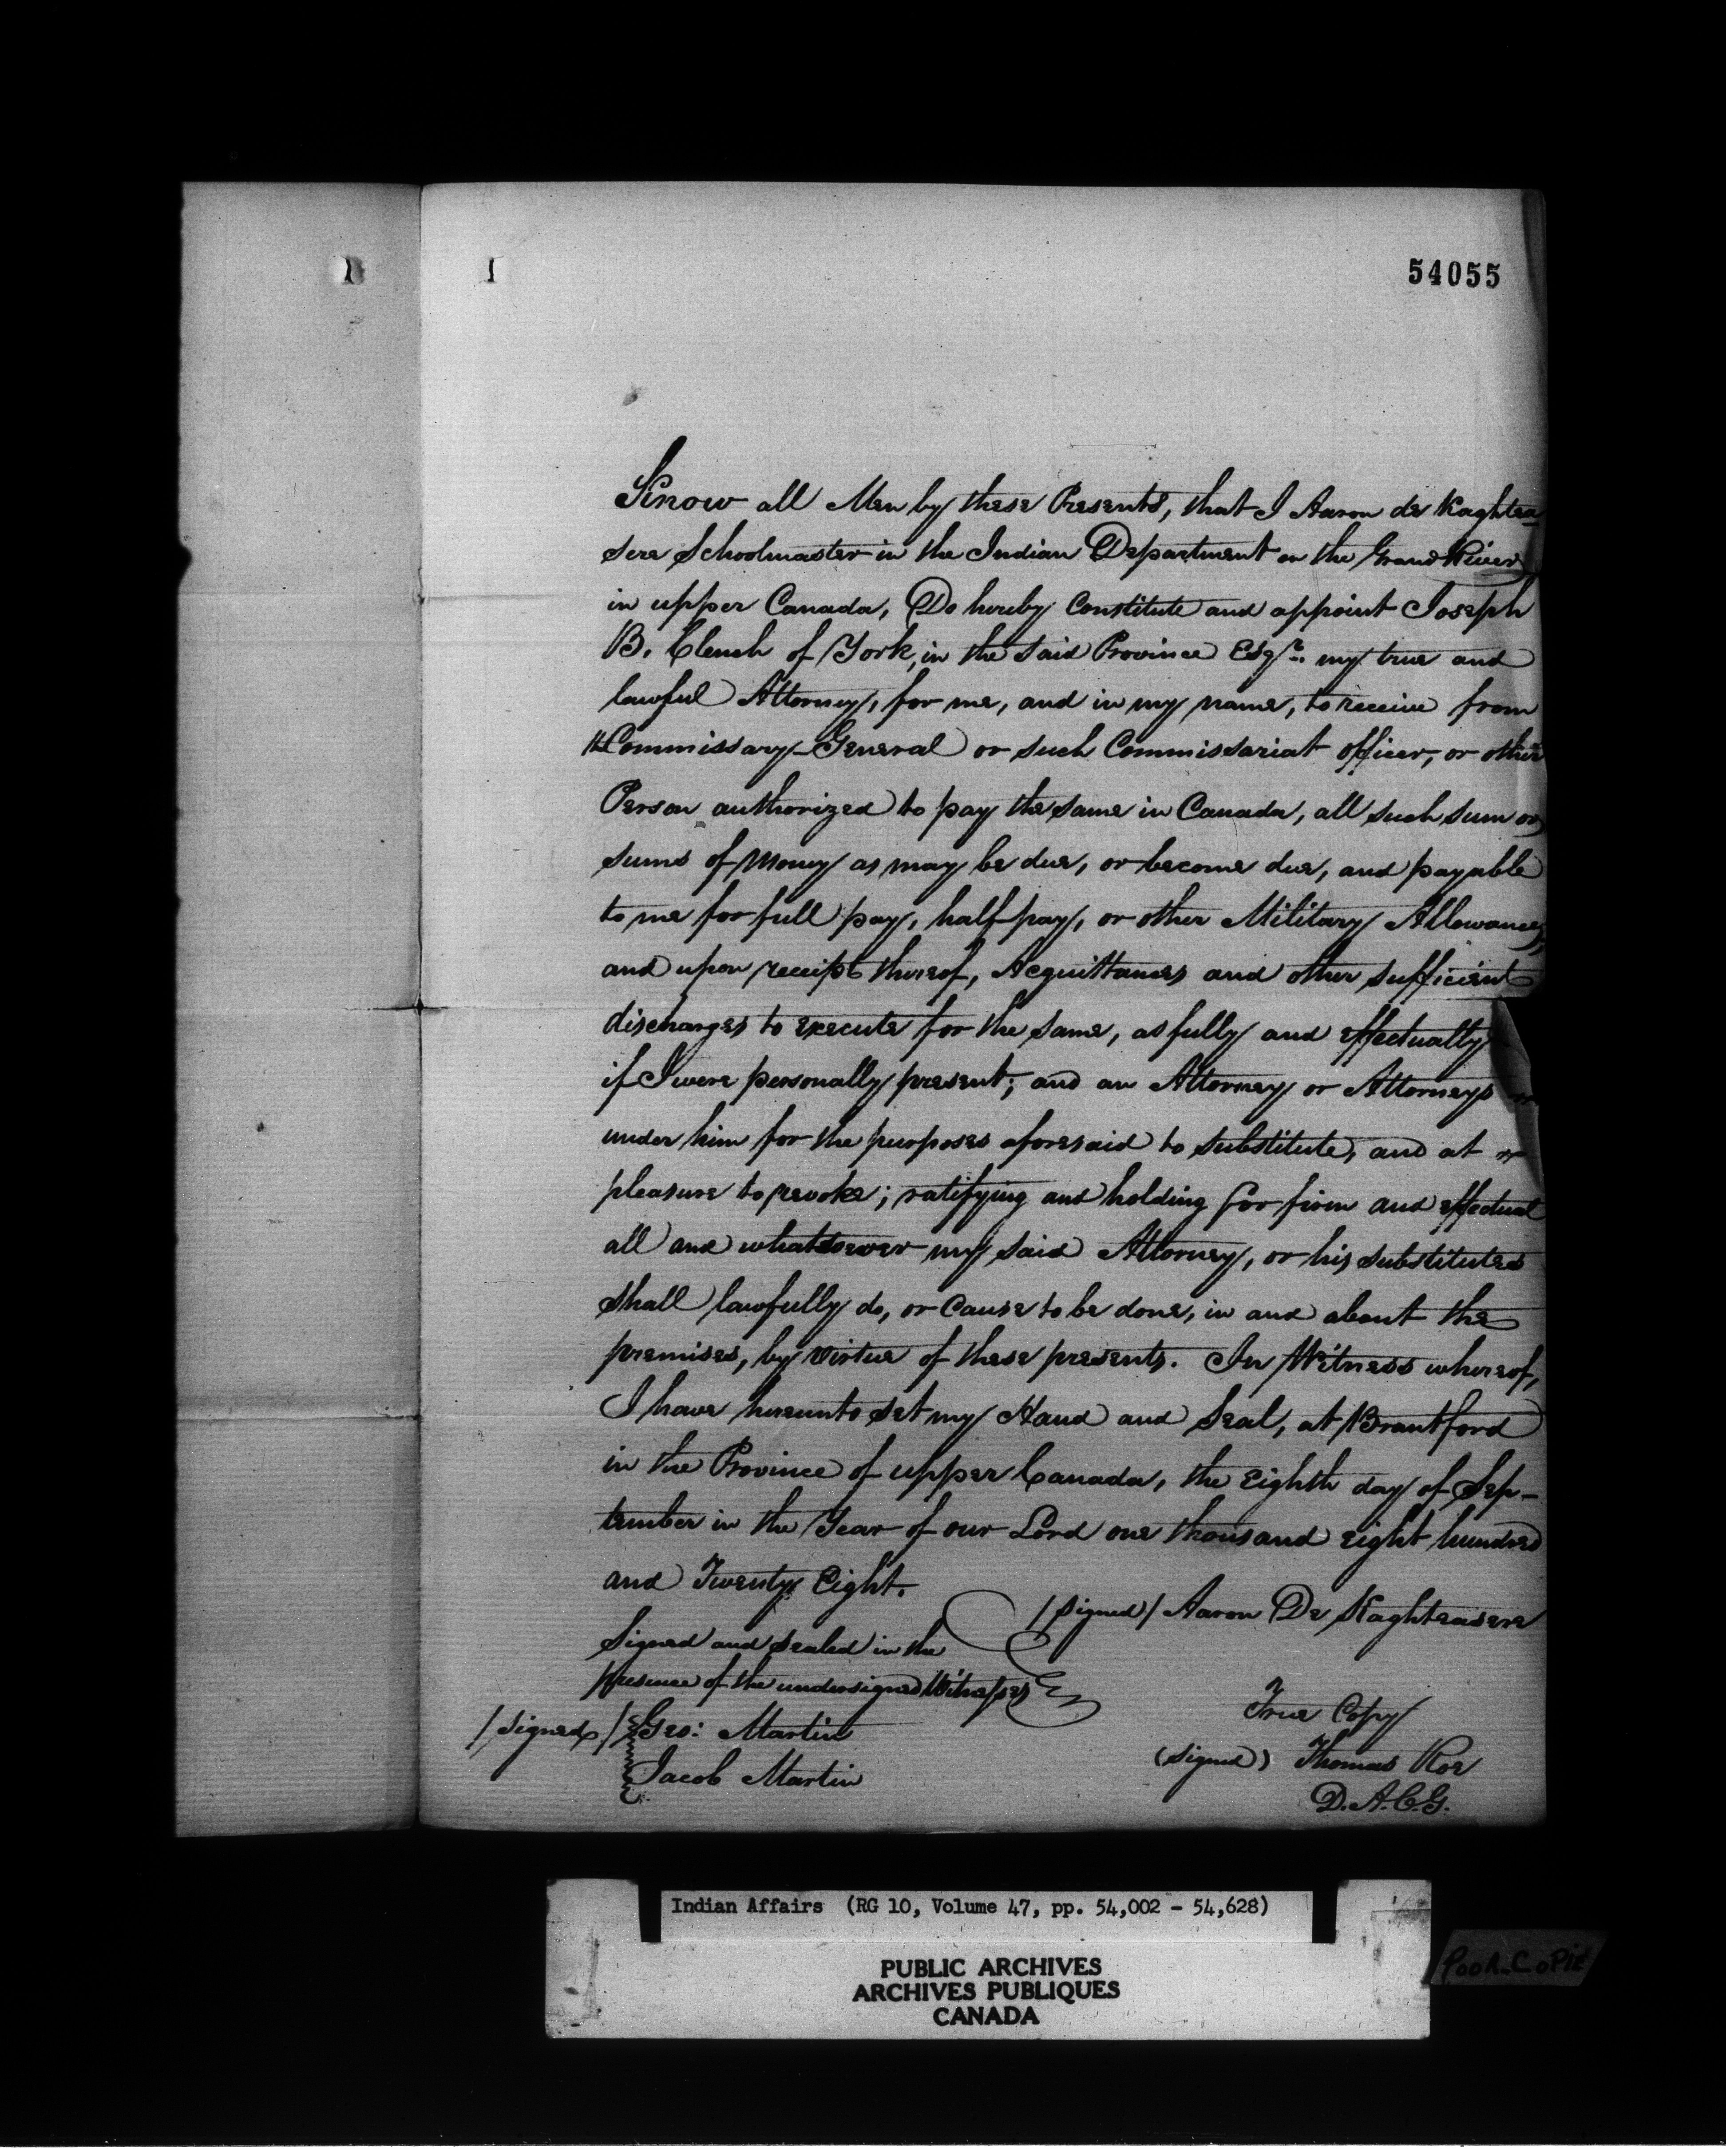 54055
Know all Men by these Presents, that I Aaron de Kaghtea=
sere Schoolmaster in the Indian Department on the Grand River
in upper Canada, Do hereby Constitute and appoint Joseph
B. Clench of York, in the said Province Esqr. my true and
lawful Attorney, for me, and in my name, to receive from
Commissary General or such Commissariat officer, or other
Person authorized to pay the same in Canada, all such sum or
sums of Money as may be due, or become due, and payable
to me for full pay, half pay, or other Military Allowances,
and upon receipt thereof, Acquittances and other sufficient
discharges to execute for the same, as fully and effectually
if I were personally present; and an Attorney or Attorneys
under him for the purposes aforesaid to substitute, and at
pleasure to revoke; ratifying and holding for firm and effectual
all and whatsoever my said Attorney, or his substitutes
shall lawfully do, or Cause to be done, in and about the
premises, by virtue of these presents. In Witness whereof,
I have hereunto set my Hand and Seal, at Brantford
in the Province of upper Canada, the Eighth day of Sep-
tember in the Year of our Lord one thousand eight hundred
and Twenty Eight.
/signed/ Aaron De Kaghteasere
Signed and sealed in the
presence of the undersigned Witnesses
/signed/ Geo: Martin
Jacob Martin
True Copy
(signed) Thomas Roe
D.A.C.G.
Indian Affairs (RG 10, Volume 47, pp. 54,002 - 54,628)
PUBLIC ARCHIVES
ARCHIVES PUBLIQUES
CANADA
Poor Copie